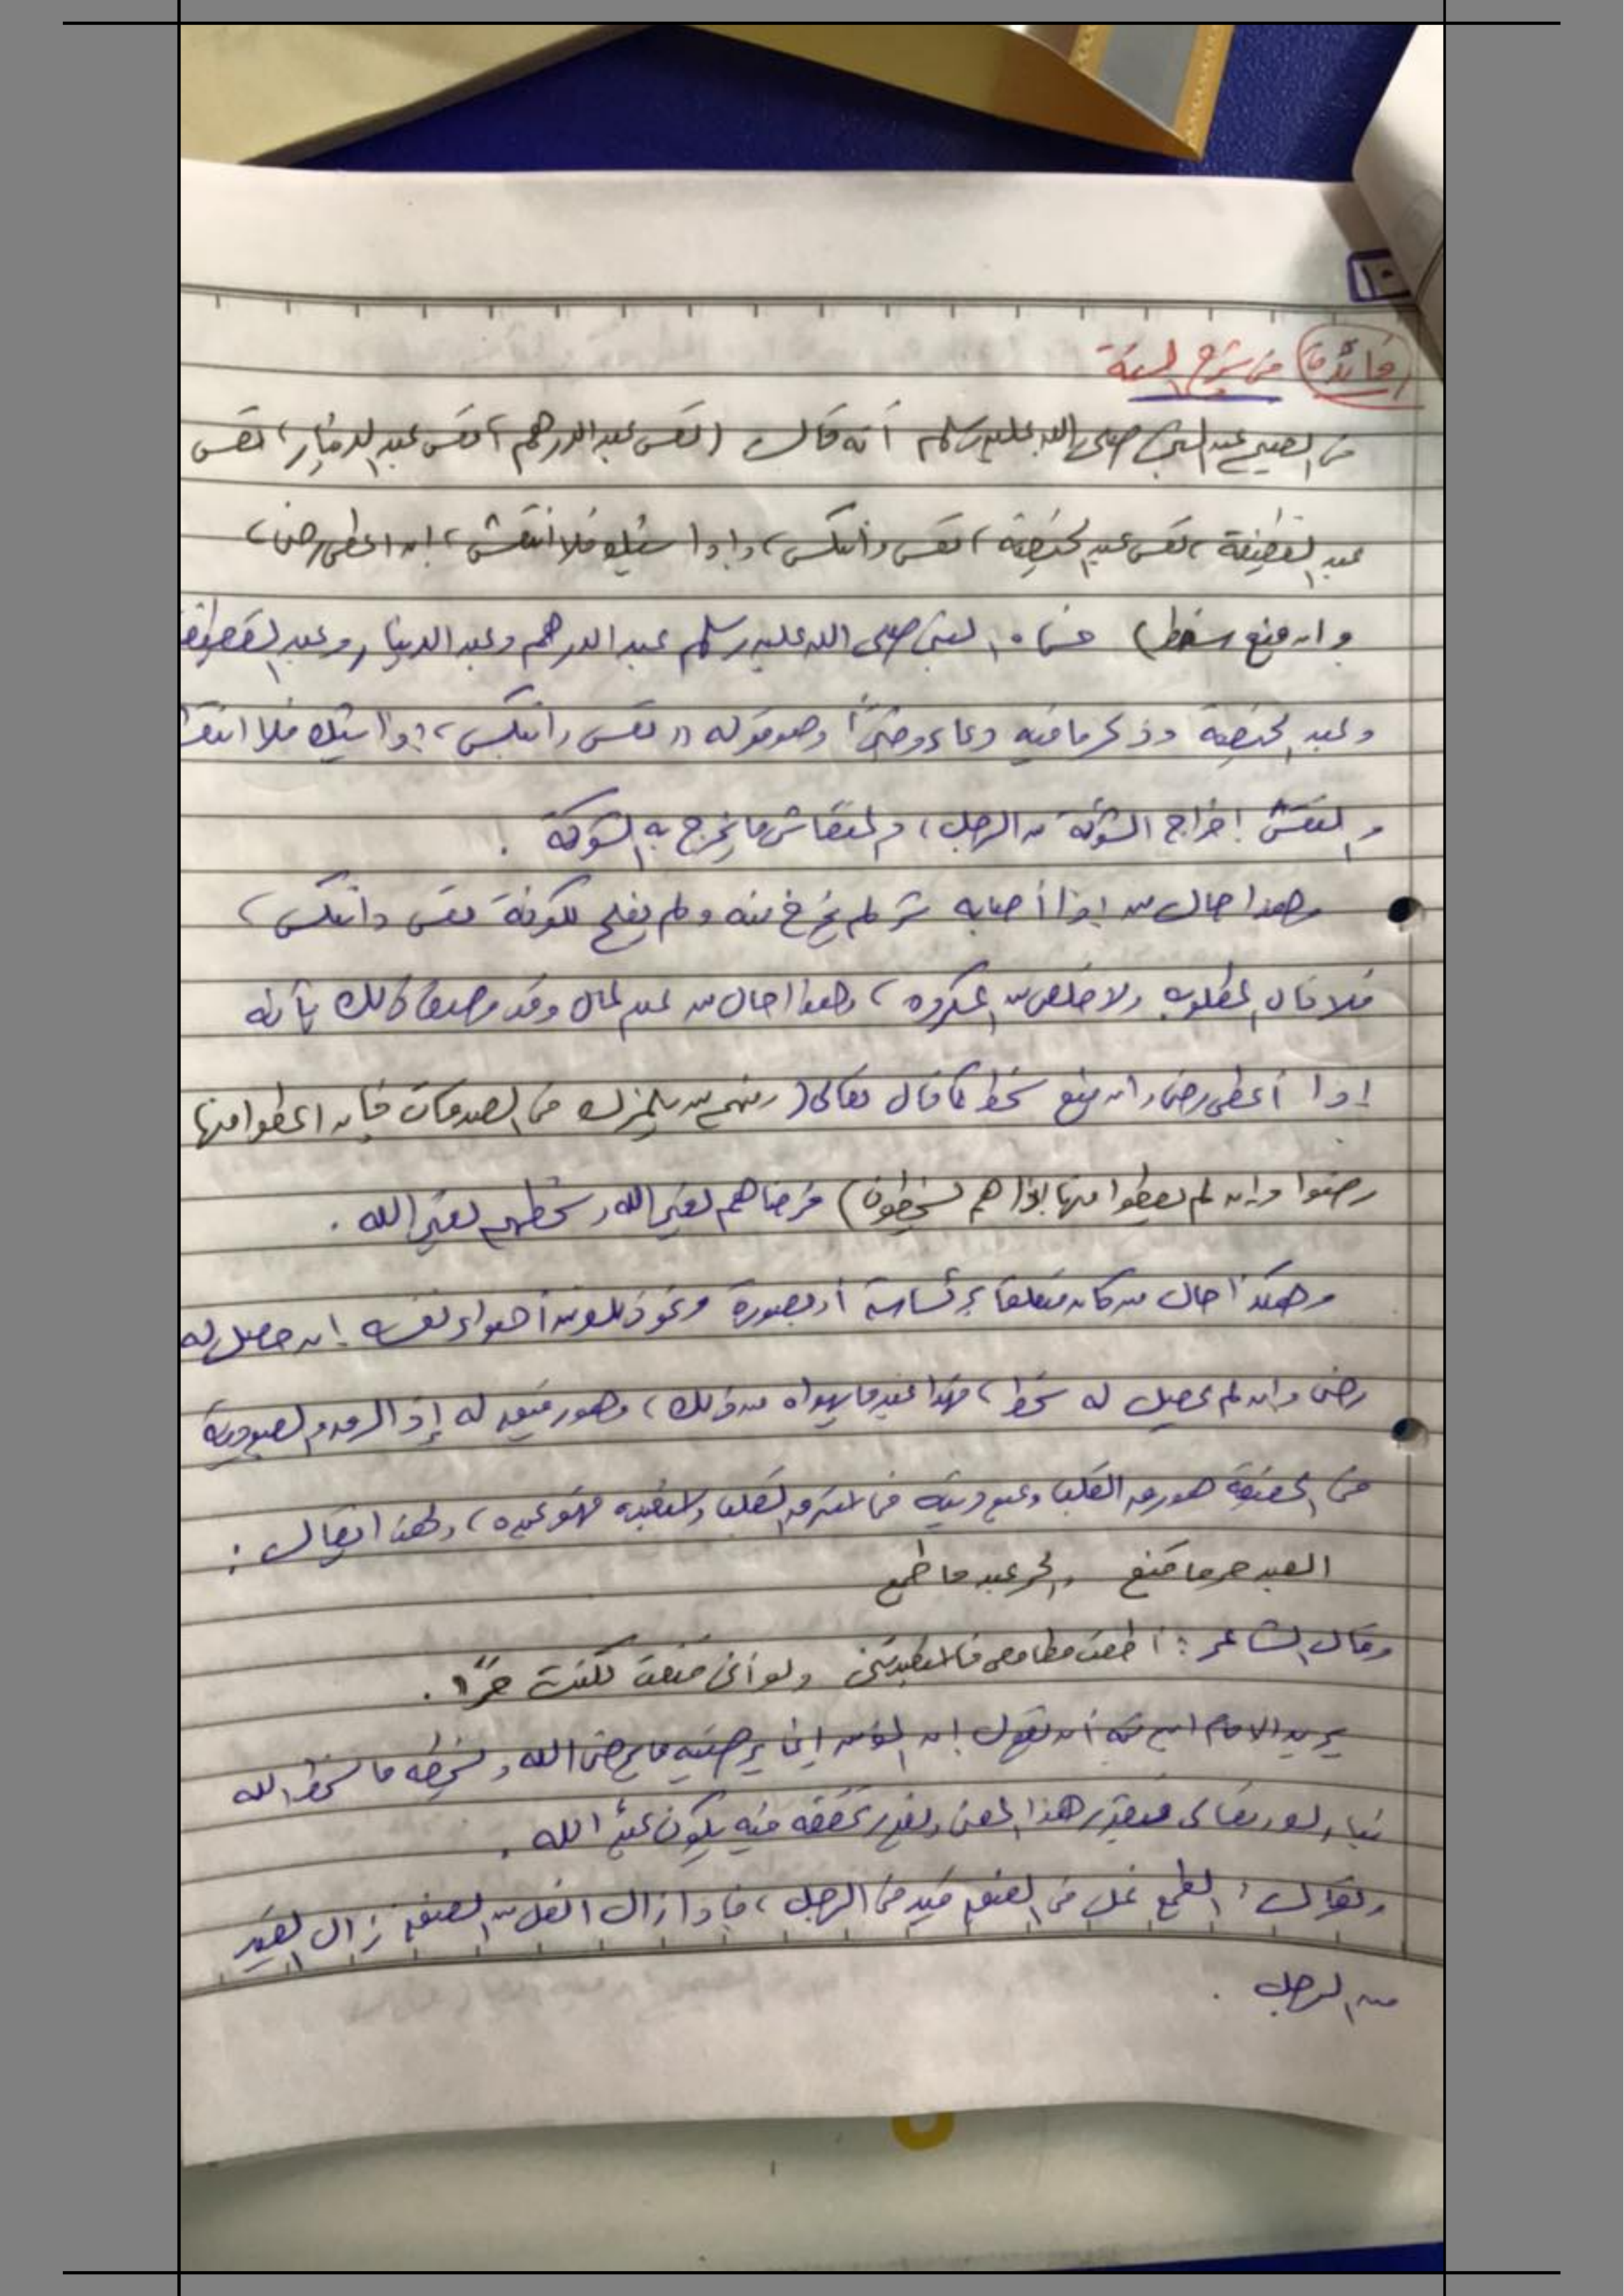 ١٠
(فائدة) من شرح السنة
في الصحيح عن النبي صلى الله عليه وسلم أنه قال (تعس عبد الدرهم، تعس عبد الدينار، تعس
عبد القطيفة، تعس عبد الخميصة، تعس وانتكس، وإذا شيك فلا انتقش، إن اعطي رضي،
وإن منع سخط) فسماه النبي صلى الله عليه وسلم عبد الدرهم وعبد الدينار وعبد القطيفة
وعبد الخميصة وذكر ما فيه دعاء وخبرًا وهو قوله ((تعس وانتكس، وإذا شيك فلا انتقش
والنقش إخراج الشوكة من الرجل، والمنقاش ما يخرج به الشوكة .
وهذا حال من إذا أصابه شر لم يخرج منه ولم يفلح لكونه تعس وانتكس،
فلا نال المطلوب ولا خلص من المكروه، وهذا حال من عبد المال وقد وصف ذلك بأنه
إذا أعطي رضي وإن منع سخط كما قال تعالى (ومنهم من يلمزك في الصدقات فإن اعطوا منها
رضوا وإن لم يعطوا منها إذا هم يسخطون) فرضاهم لغير الله وسخطهم لغير الله .
وهكذا حال من كان متعلقا برئاسة أو بصورة ونحو ذلك من أهواء نفسه إن حصل له
رضي وإن لم يحصل له سخط، فهذا عبد ما يهواه من ذلك، وهو رقيق له إذ الرق والعبودية
في الحقيقة هو رق القلب وعبوديته فما استرق القلب واستعبده فهو عبده، ولهذا يقال :
العبد حر ما قنع والحر عبد ما طمع
وقال الشاعر : أطعت مطامعي فاستعبدتني ولو أني قنعت لكنت حرًا .
يريد الامام ابن تيمية أن يقول إن المؤمن إنما يرضيه ما يرضي الله ويسخطه ما يسخط الله
تبارك وتعالى فبقدر هذا المعنى وبقدر تحققه فيه يكون عبدًا لله .
ويقال : الطمع غل في العنق قيد في الرجل، فإذا زال الغل من العنق زال القيد
من الرجل .